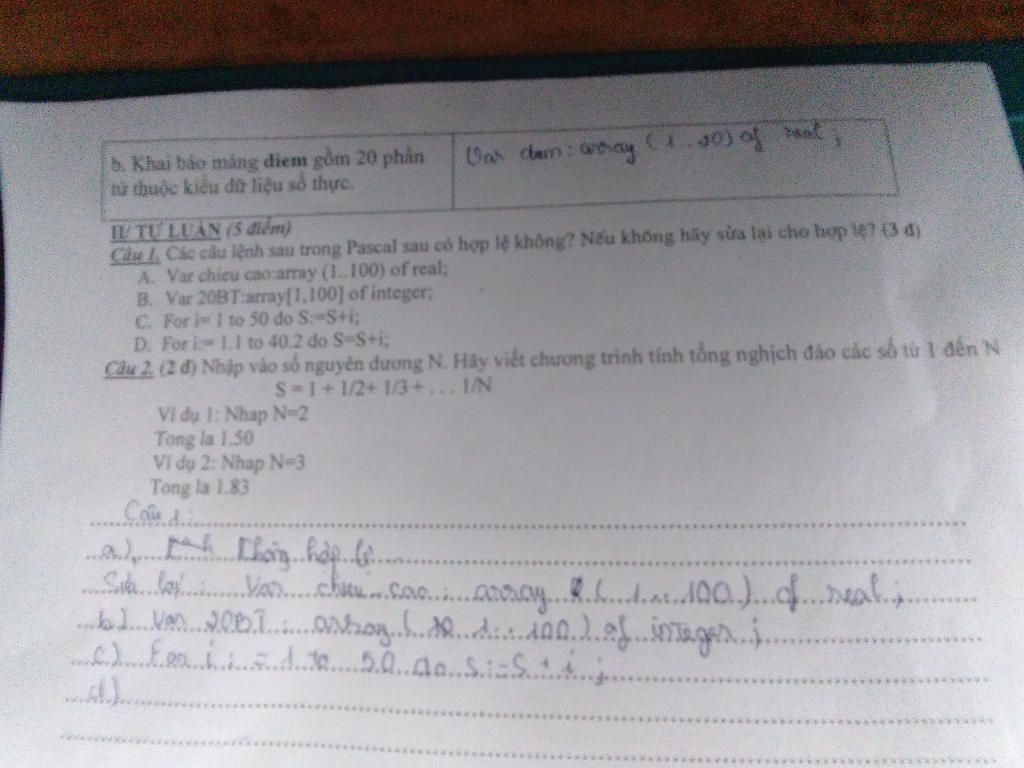 b. Khai báo mảng diem gồm 20 phần
tử thuộc kiểu dữ liệu số thực.
Var diem : array ( 1 .. 20 ) of real ;
II/ TỰ LUẬN (5 điểm)
Câu 1. Các câu lệnh sau trong Pascal sau có hợp lệ không? Nếu không hãy sửa lại cho hợp lệ? (3 đ)
A. Var chieu cao:array (1..100) of real;
B. Var 20BT:array[1,100] of integer;
C. For i= 1 to 50 do S:=S+i;
D. For i:= 1.1 to 40.2 do S=S+i;
Câu 2. (2 đ) Nhập vào số nguyên dương N. Hãy viết chương trình tính tổng nghịch đảo các số từ 1 đến N
S = 1 + 1/2+ 1/3 + . . . 1/N
Ví dụ 1: Nhap N=2
Tong la 1.50
Ví dụ 2: Nhap N=3
Tong la 1.83
Câu 1 :
a) Không hợp lệ
Sửa lại : Var chieu cao : array ( 1 .. 100 ) of real ;
b) Var 20BT : array ( 1 .. 100 ) of integer ;
c) For i : = 1 to 50 do S := S + i ;
d)